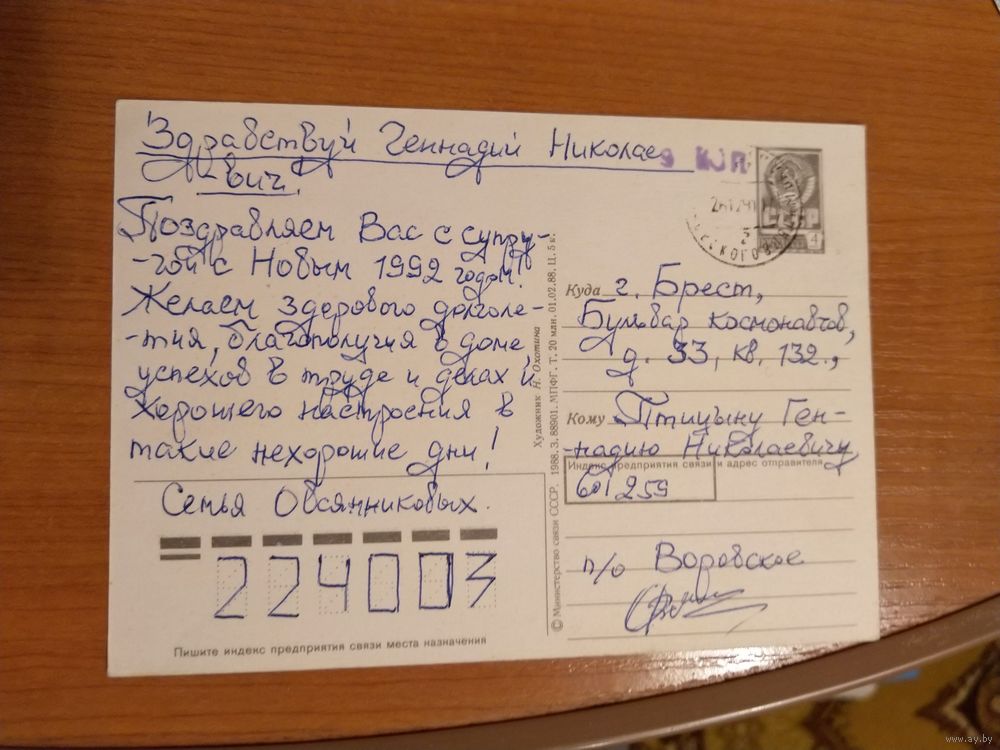 Здравствуй Геннадий Николае
-вич.
Поздравляем Вас с супру-
-гой с Новым 1992 годом!
Желаем здорового долголе-
-тия, благополучия в доме,
успехов в труде и делах и
хорошего настроения в
такие нехорошие дни!
Семья Овсянниковых.
224003
Пишите индекс предприятия связи места назначения
© Министерство связи СССР. 1988. З. 88901. МПФГ. Т. 20 млн. 01.02.88. Ц. 5 к.
Художник Н. Охотина
СССР
4
Куда г. Брест,
Бульвар Космонавтов,
д. 33, кв. 132.,
Кому Птицыну Ген-
-надию Николаевичу
Индекс предприятия связи и адрес отправителя
601259
п/о Воровское
www.ay.by